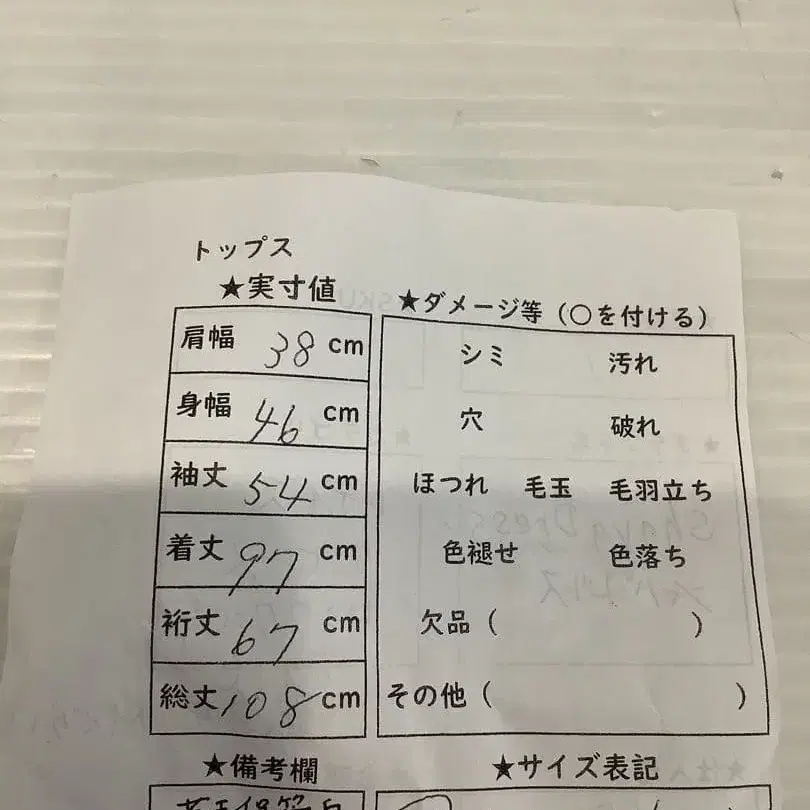 トップス
★実寸値
肩幅 38 cm
身幅 46 cm
袖丈 54 cm
着丈 97 cm
裄丈 67 cm
総丈 108 cm
★備考欄
★ダメージ等（○を付ける）
シミ 汚れ
穴 破れ
ほつれ 毛玉 毛羽立ち
色褪せ 色落ち
欠品（ ）
その他（ ）
★サイズ表記